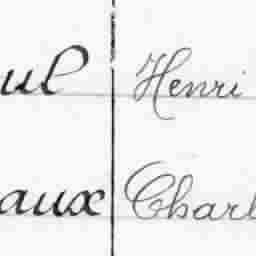 ul Henri
aux Charl